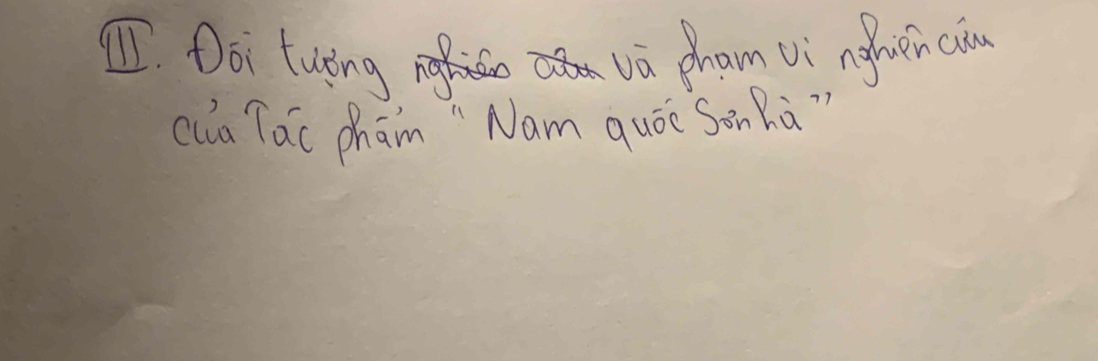 III. Đối tượng nghiên cứu và phạm vi nghiên cứu
của Tác phẩm "Nam quốc Sơn hà"